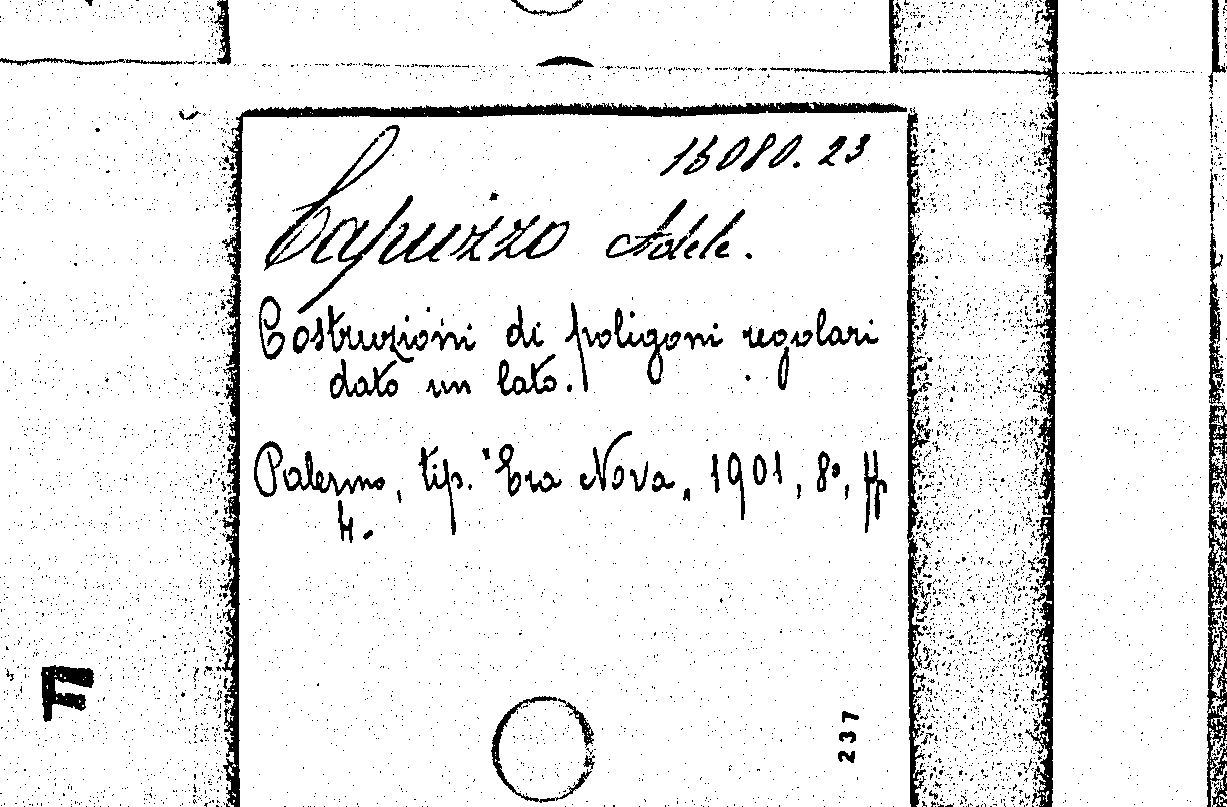 15080.23
Capuzzo Adele.
Costruzioni di poligoni regolari
dato un lato.
Palermo, tip. "Era Nova", 1901, 8º, pp
4.
F
237